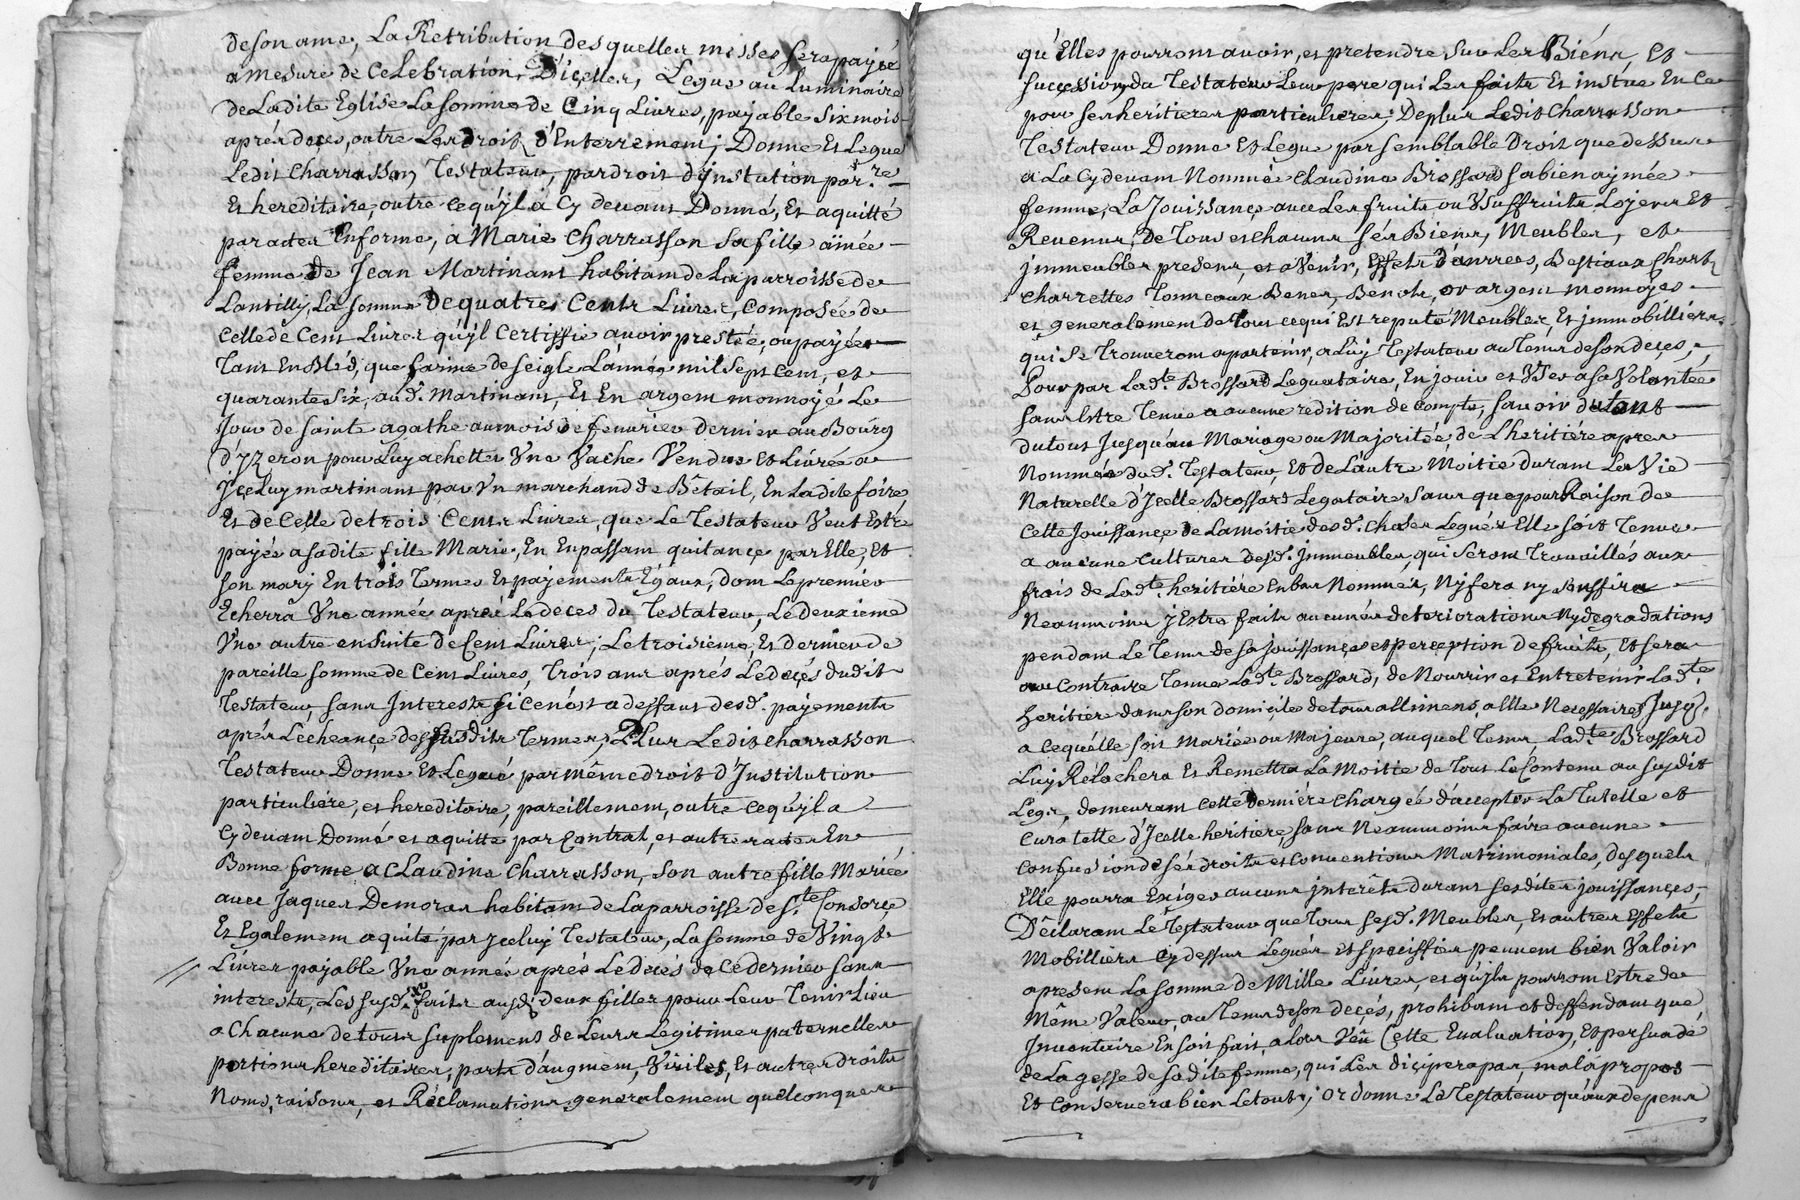 de son ame, La Retribution desquelles messes sera payée
a mesure de Celebration D'icelles, Legue au Luminaire
de Ladite Eglise La somme de Cinq Livres, payable six mois
aprés deces, outre Les droits d'Enterrement; Donne Et Legue
Ledit Charrasson Testateur, par droit d'jnstution par.re
Et hereditaire, outre ce qu'jl à Cy devant Donné, Et aquitté
par actes En forme, à Marie Charrasson sa fille ainée
femme de Jean Martinant habitant de La parroisse de
Lantilly, La somme De quatres Cents Livres, Composée de
Celle de Cent Livres qu'jl Certiffie avoir prestée, ou payée
Tant En Bléd, que farine de seigle L'année mil sept Cent, et
quarante six, aud. Martinant, Et En argent monnoyé Le
Jour de sainte agathe au mois de fevrier dernier au Bourg
d'jzeron pour Luy achetter Une Vache Vendue et Livrée a
jceluy martinant par Un marchand de Bêtail, En Ladite foire,
Et de Celle de trois Cents Livres, que Le Testateur Veut Estre
payée a sadite fille Marie, En En passant quitance par Elle, Et
son mary En trois Termes Et payements Egaux, dont Le premier
Echerra Une année aprés Le deces du Testateur, Le deuxieme
Une autre ensuite de Cent Livres; Le troisieme, Et dernier de
pareille somme de Cent Livres, Trois ans aprés Le decés dudit
Testateur, sans Interests si ce n'est a deffaut desd. payements
aprés L'echeance des susdits Termes; Plus Ledit Charrasson
Testateur Donne Et Legue par même droit d'Institution
particuliére, et hereditaire, pareillement, outre ce qu'jl a
Cy devant Donné et aquitte par Contrat, et autres actes En
Bonne forme a Claudine Charrasson, son autre fille Mariée
avec Jaques Demoras habitant de La parroisse de S.te Consorce
Et Egalement aquité par jceluy Testateur, La somme de Vingt
Livres payable Une année aprés Le decés de Ce dernier sans
interests, Les susd. faits ausd. deux filles pour Leur Tenir Lieu
a Chacune de tours suplement de Leurs Legitimes paternelles
portions hereditaires, parts d'augment, Viriles, Et autres droits
Noms, raisons, et Réclamations generalement quelconques
qu'Elles pourront avoir, et pretendre sur Les Biéns, Et
succession du Testateur Leur pere qui Les faits Et instue En Ce
pour ses heritieres particulieres; De plus Ledit Charrasson
Testateur Donne Et Legue par semblable Droit que dessus
a La Cy devant Nommée Claudine Brossard sa bien aymée
femme, La Jouissance avec Les fruits ou Usuffruits Loyers Et
Revenus, De Tous et chacuns sés Biens, Meubles, et
jmmeubles presens, et a Venir, Effets dénrees, Bestiaux Chars
Charrettes Tonneaux Benes, Benots, or argent monnoyes
et generalement de Tous ce qui Est reputé Meubles, Et jmmobilliers,
qui se Trouveront apartenir, a Luy Testateur au Tems de son decés,
Pour par Lad.te Brossard Leguataire, En jouir et User a sa Volontée
sans Estre Tenue a aucune redition de Compte, savoir du tout
du tout Jusqu'au Mariage ou Majoritée, de L'heritiére apres
Nommée dud. Testateur, Et de L'autre Moitie durant La Vie
Naturelle d'Icelle Brossard Legataire sans que pour Raison de
Cette Jouissance de La moitie desd. choses Leguées Elle soit Tenue
a aucune Cultures desd. Jmmeubles, qui seront Travaillés aux
frais de Lad.te heritiére En bas Nommée, Ny fera ny souffrira
Neammoins j Estre faits aucunes deteriorations Ny degradations
pendant Le Tems de sa jouissance et perception de fruits, Et sera
au Contraire Tenue Lad.te Brossard, de Nourrir et Entretenir Lad.te
heritiére dans son domicile de tous allimens, a Elle Necessaires Jusq.
a ce qu'elle soit Mariée ou Majeure, auquel Tems, Lad.te Brossard
Luy Rélachera Et Remettra La Moitie de Tout Le Contenu au susdit
Legs, demeurant Cette Derniére Chargée d'accepter La Tutelle et
Curatelle d'Icelle heritiére, sans Neammoins faire aucune
Confusion de sés droits et Conventions Matrimoniales, desquels
Elle pourra Exiger aucuns jnterêts durant sesdites jouissances,
Déclarant Le Testateur que Tous sesd. Meubles, Et autres Effets
Mobilliers Cy dessus Legués et speciffies peuvent bien Valoir
a present La somme de Mille Livres, et qu'jls pourront Estre de
Même Valeur, au Tems de son decés, prohibant et deffendant que
Jnventaire En soit fait, alors Vêu Cette Evaluation, Et persuadé
de La gesse de sadite femme, qui Les dicipera pas, mal á propos
Et Conservera bien Le tout; ordonne Le Testateur qu'aux depens